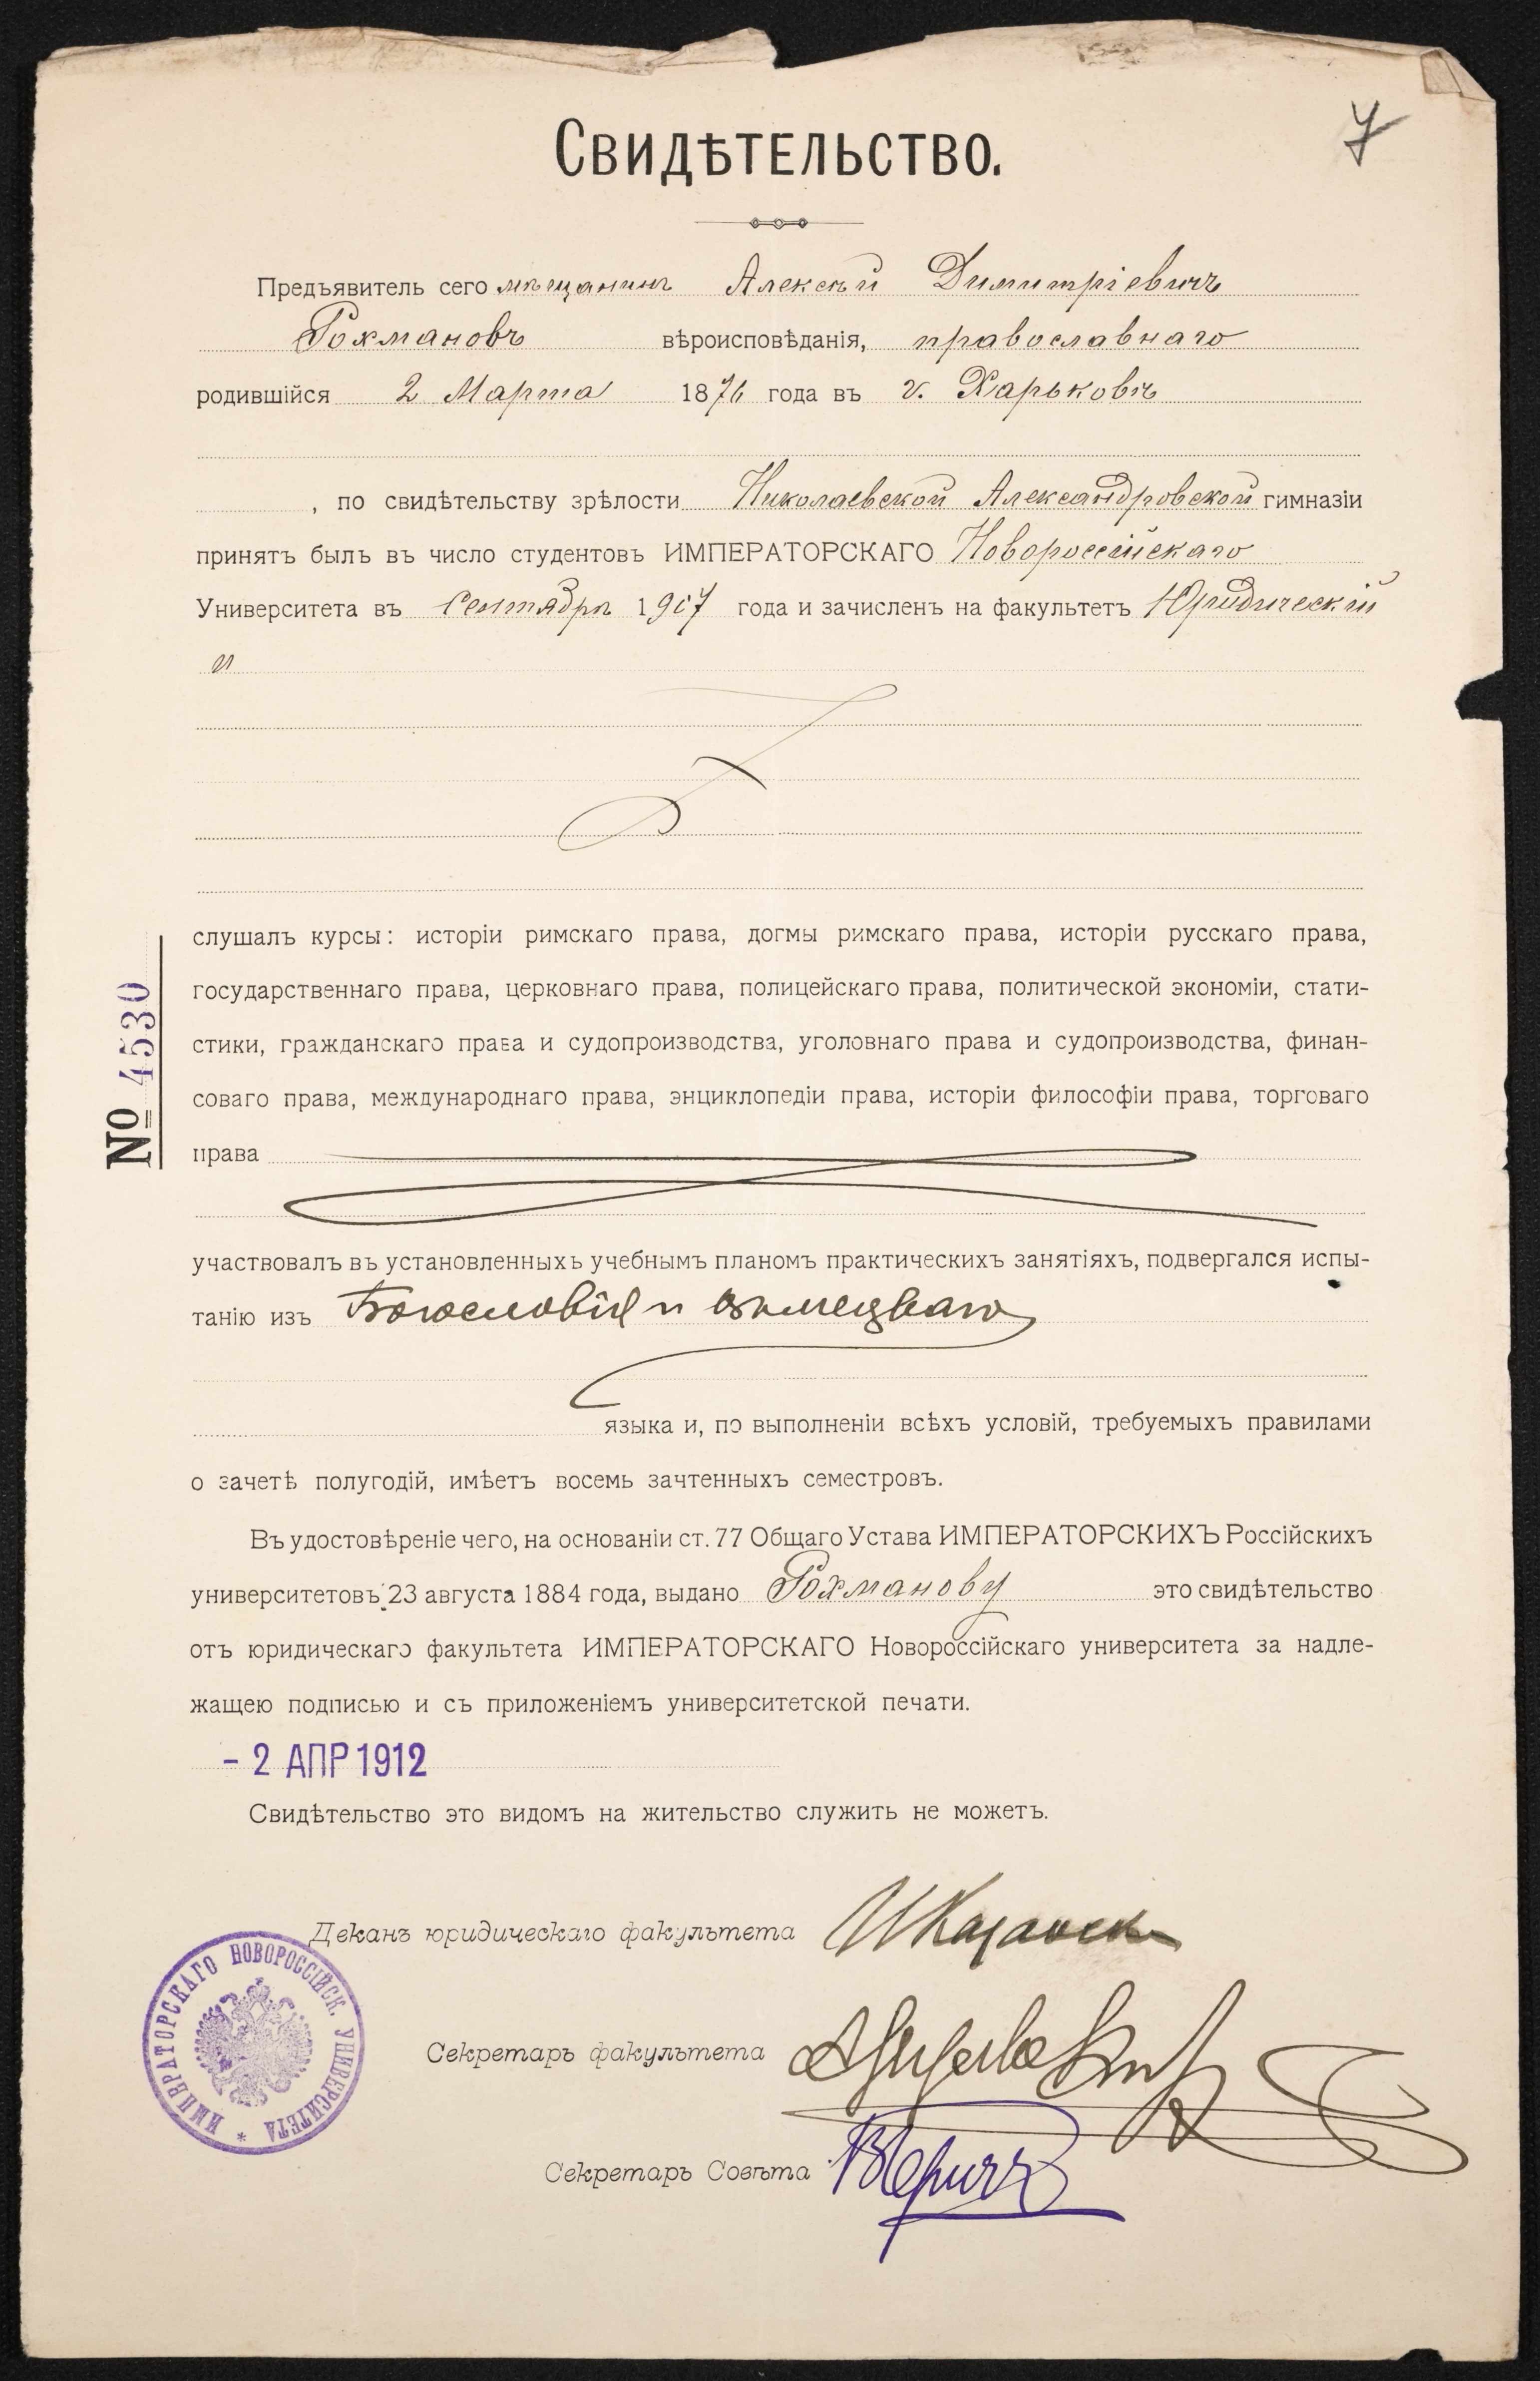 7
Свидѣтельство.
Предъявитель сего мѣщанинъ Алексѣй Димитріевичъ
Рохмановъ вѣроисповѣданія, православнаго
родившійся 2 Марта 1876 года въ г. Харьковѣ
, по свидѣтельству зрѣлости Николаевской Александровской гимназіи
принятъ былъ въ число студентовъ ИМПЕРАТОРСКАГО Новороссійскаго
Университета въ Сентябрѣ 1907 года и зачисленъ на факультетъ Юридическій
и
слушалъ курсы: исторіи римскаго права, догмы римскаго права, исторіи русскаго права,
государственнаго права, церковнаго права, полицейскаго права, политической экономіи, стати-
стики, гражданскаго права и судопроизводства, уголовнаго права и судопроизводства, финан-
соваго права, международнаго права, энциклопедіи права, исторіи философіи права, торговаго
права
№ 4530
участвовалъ въ установленныхъ учебнымъ планомъ практическихъ занятіяхъ, подвергался испы-
танію изъ Богословія и нѣмецкаго
языка и, по выполненіи всѣхъ условій, требуемыхъ правилами
о зачетѣ полугодій, имѣетъ восемь зачтенныхъ семестровъ.
Въ удостовѣреніе чего, на основаніи ст. 77 Общаго Устава ИМПЕРАТОРСКИХЪ Россійскихъ
университетовъ 23 августа 1884 года, выдано Рохманову это свидѣтельство
отъ юридическаго факультета ИМПЕРАТОРСКАГО Новороссійскаго университета за надле-
жащею подписью и съ приложеніемъ университетской печати.
- 2 АПР 1912
Свидѣтельство это видомъ на жительство служить не можетъ.
Деканъ юридическаго факультета
Секретарь факультета
Секретарь Совѣта
ИМПЕРАТОРСКАГО НОВОРОССІЙСК. УНИВЕРСИТЕТА *